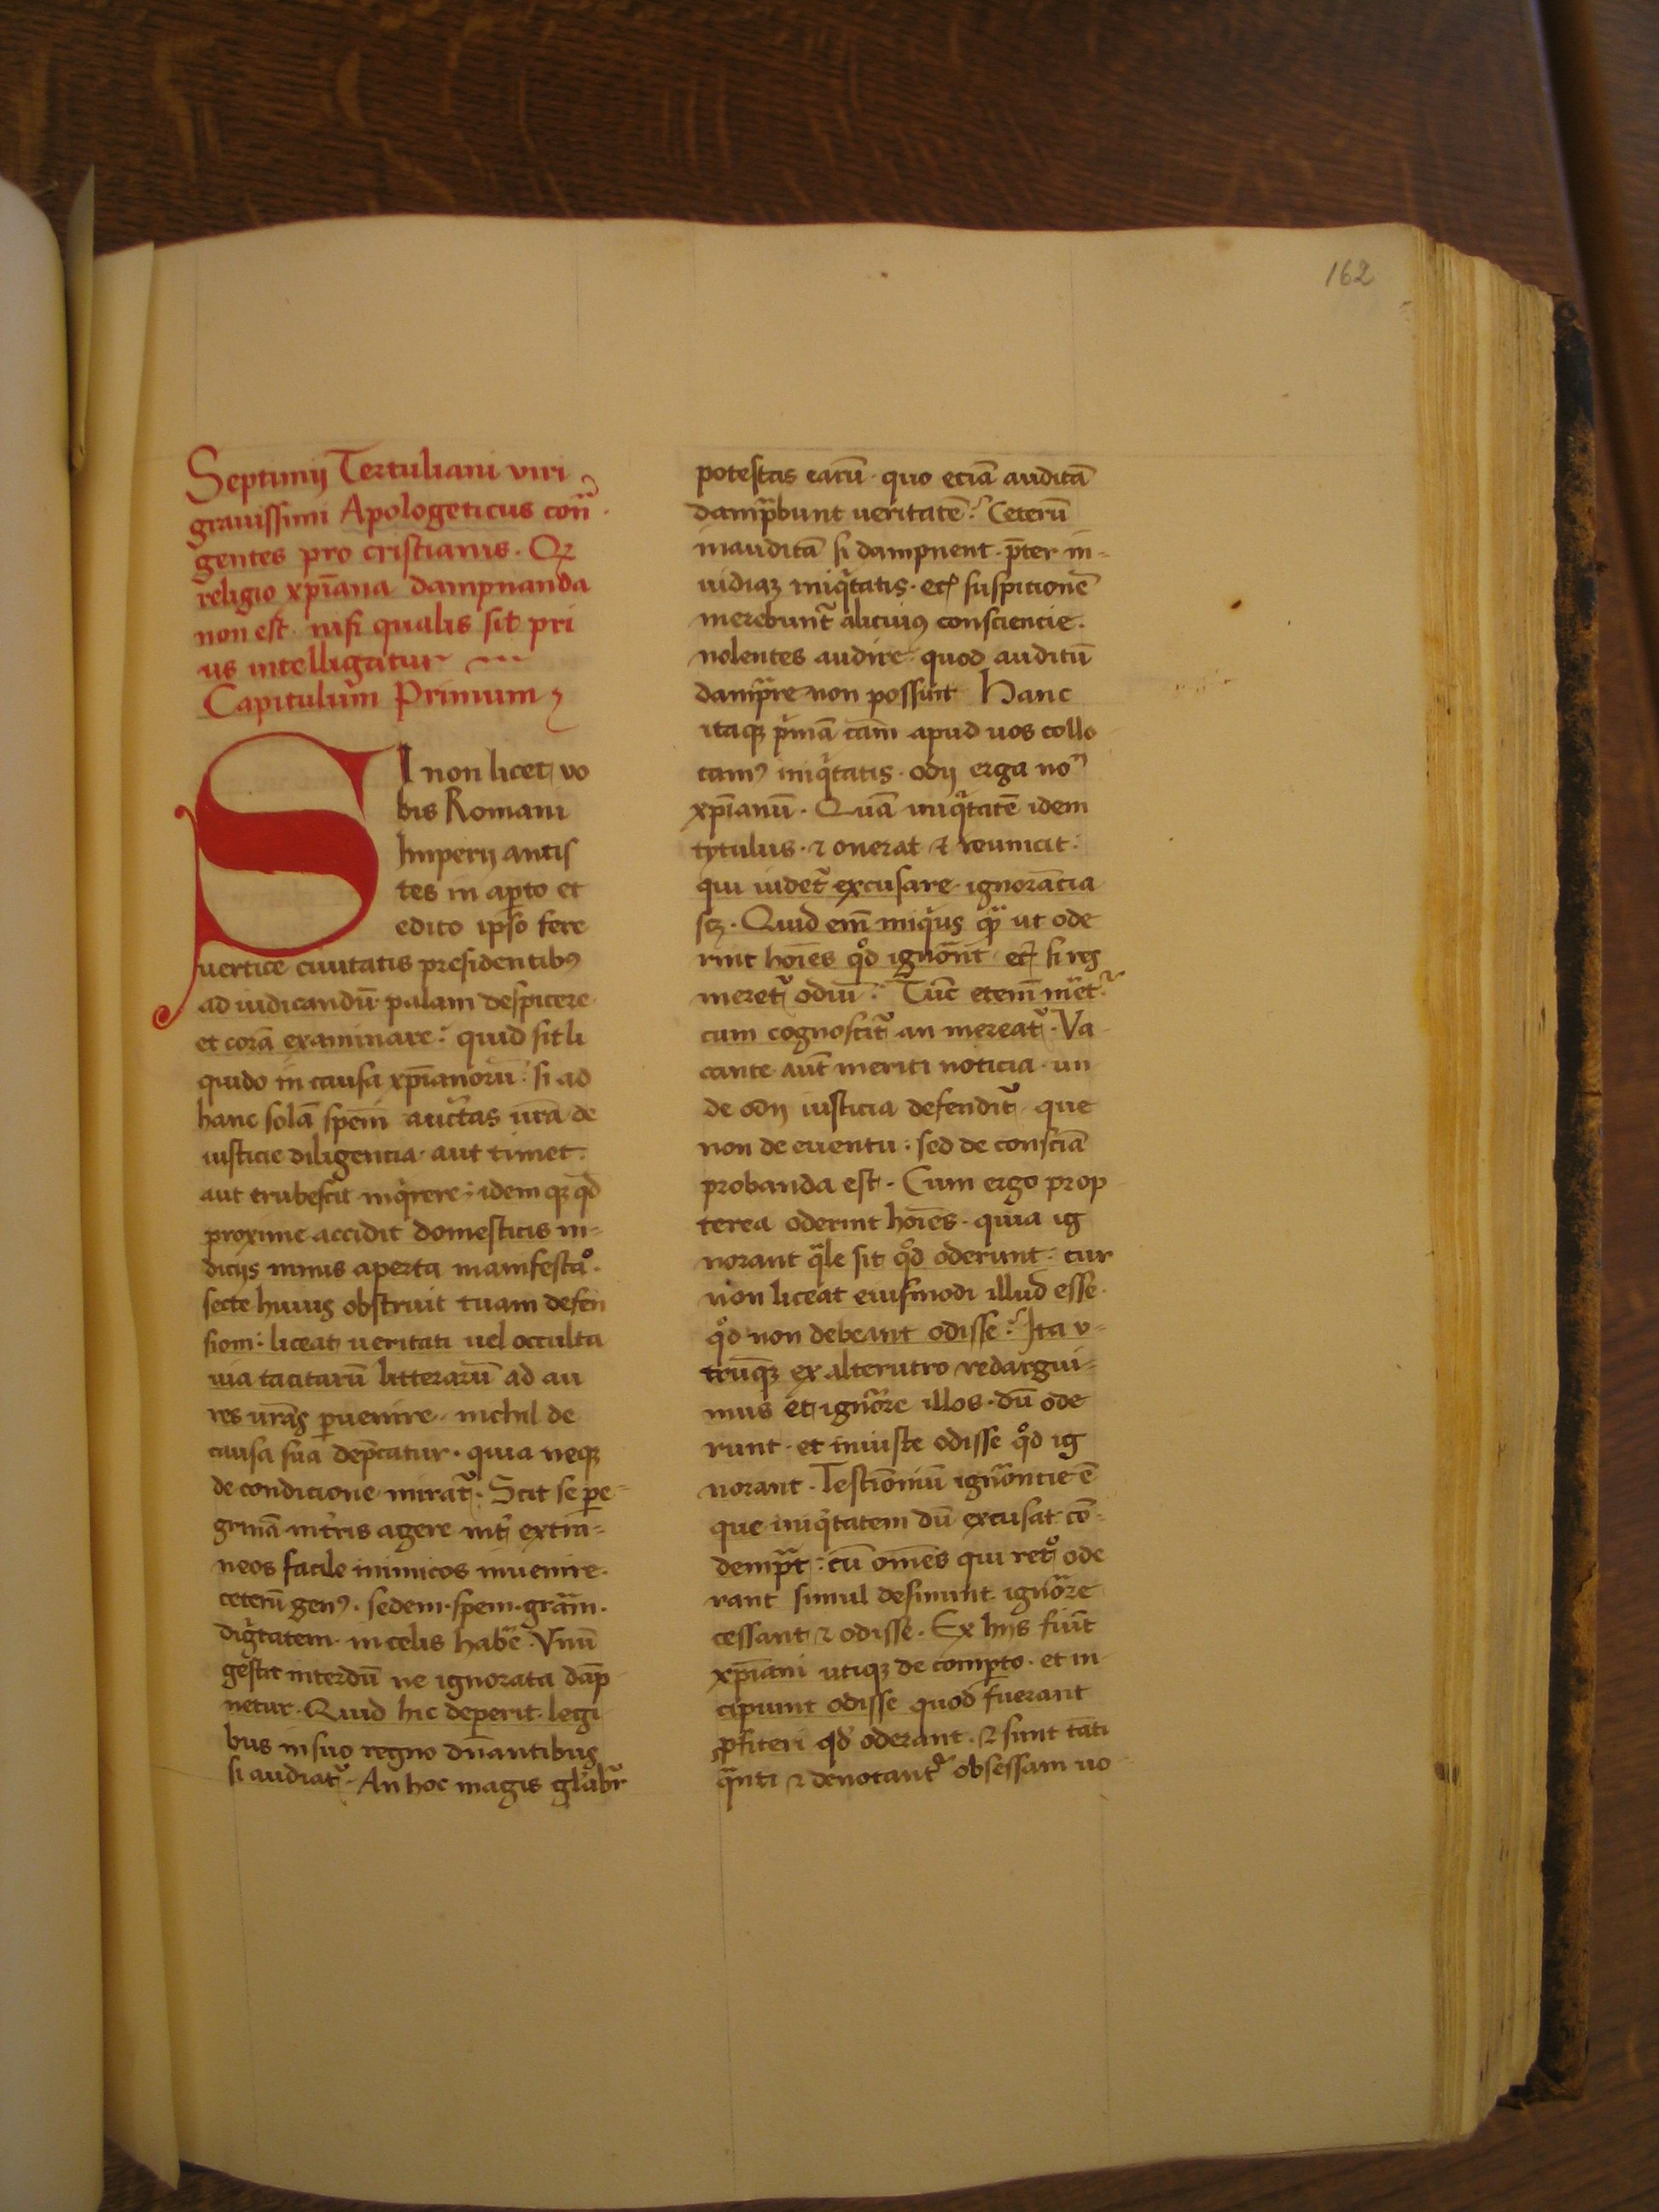 162
Septimij Tertuliani viri
grauissimi Apologeticus con̄
gentes pro cristianis. Qꝫ
religio xp̄iana dampnanda
non est. nisi qualis sit pri
us intelligatur
Capitulum Primum
SI non licet vo
bis Romani
Imperij antis
tes in aꝑto et
edito ipso fere
uertice ciuitatis presidentibꝰ
ad iudicandū palam despicere
et corā examinare: quid sit li
quido in causa xp̄ianorū: si ad
hanc solā spem̄ auctͣtas vr̄a de
iusticie diligencia. aut timet.
aut erubescit inqͥrere: idem qꝫ qd̄
proxime accidit domesticis in-
dicijs nimis aperta manifestaͦ.
secte huius obstruit tuam defen
siom: liceat ueritati uel occulta
uia tacitarū litterarū ad au
res vr̄as ꝑuenire. nichil de
causa sua dep̄catur. quia neqꝫ
de condicione mirat᷑. Scit se ꝑe-
grinā in tr̄is agere int̄ extra-
neos facile inimicos inuenire.
ceterū genꝰ. sedem. spem. gr̄am.
digͭtatem in celis habe᷑. Vnū
gestit interdū ne ignorata dāp
netur. Quid hic deperit legi
bus in suo regno dn̄antibus
si audiat᷑. An hoc magis glͣabr̄
potestas earū. quo eciā auditā
dampͣbunt ueritatē? Ceterū
inauditā si dampnent. p̄ter in-
uidiaꝫ iniqͥtatis. etī suspicionē
merebunt᷑ alicuiꝰ consciencie.
nolentes audire. quod auditū
dampͣre non possunt Hanc
itaqꝫ pͥmā cām apud uos collo
camꝰ iniqͥtatis. odij erga noͫ
xp̄ianū. Quā iniqͥtatē idem
tytulus. ⁊ onerat ⁊ reuincit:
qui uidet᷑ excusare. ignorācia
scꝫ. Quid em̄ iniqͥus qͣꝫ ut ode
rint hoīes qͦd ignōrāt etī si res
meret᷑ odiū? Tūc etem̄ meret᷑
cum cognoscit᷑ an mereat᷑. Va
cante aut̄ meriti noticia. un
de odij iusticia defendit᷑ que
non de euentu: sed de consciā
probanda est. Cum ergo prop
terea oderint hoīes. quia ig
norant qͣle sit qͦd oderunt: cur
non liceat eiusmodi illud esse.
qͦd non debeant odisse? Ita v-
trūqꝫ ex alterutro redargui-
mus et ignoͣre illos. dū ode
runt. et iniuste odisse qͦd ig
norant. Testiōniū ignoͣntie ē
que iniqͥtatem dū excusat cō-
dempͣt: cū om̄es qui retͦ ode
rant simul desinunt ignoͣre
cessant ⁊ odisse. Ex hijs fiūt
xp̄iani utiqꝫ de comꝑto. et in
cipiunt odisse quod fuerant
ꝓfiteri qd̕ oderant. ⁊ sunt tāti
qͣnti ⁊ denotant᷑ obsessam uo